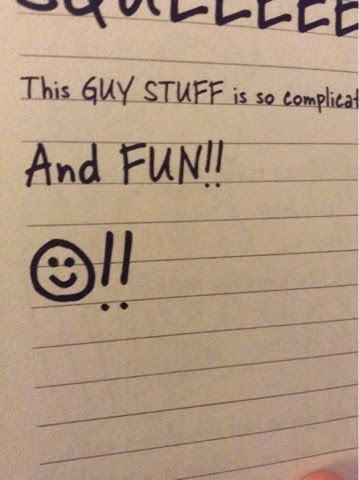 SQUEEEEE
This GUY STUFF is so complicat
And FUN!!
☺!!